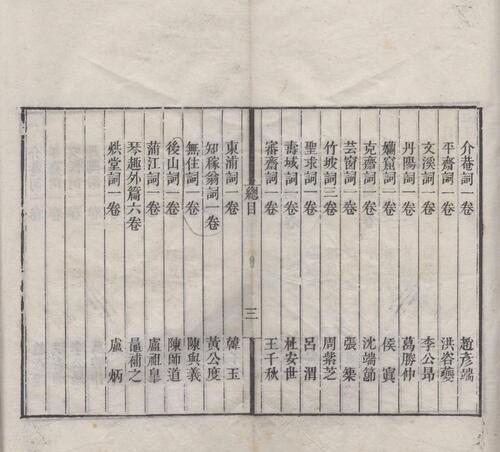 介菴詞一卷 趙彥端
平齋詞一卷 洪咨夔
文溪詞一卷 李公昂
丹陽詞一卷 葛勝仲
嬾窟詞一卷 侯寘
克齋詞一卷 沈端節
芸窗詞一卷 張榘
竹坡詞三卷 周紫芝
聖求詞一卷 呂渭
壽域詞一卷 杜安世
審齋詞一卷 王千秋
總目 三
東浦詞一卷 韓玉
知稼翁詞一卷 黃公度
無住詞一卷 陳與義
後山詞一卷 陳師道
蒲江詞一卷 盧祖皐
琴趣外篇六卷 晁補之
烘堂詞一卷 盧炳